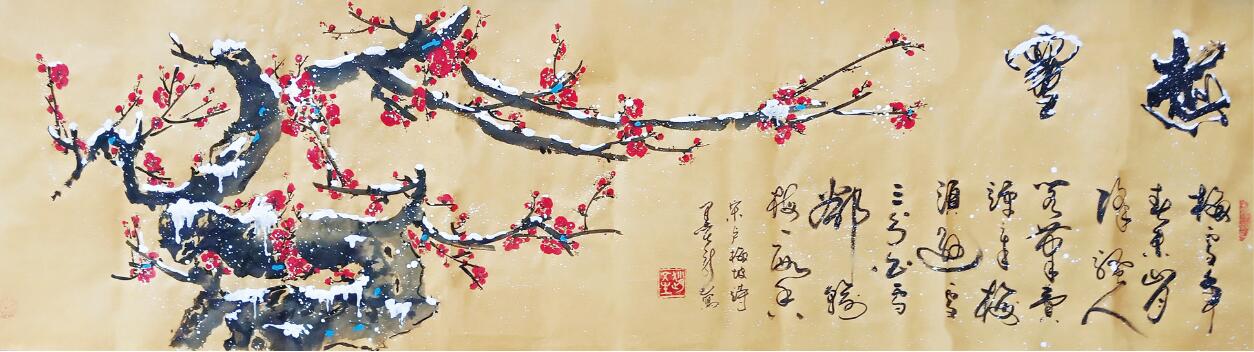 梅雪争
春未肯
降骚人
阁笔费
评章梅
须逊雪
三分白雪
却输
梅一段香
宋卢梅坡诗